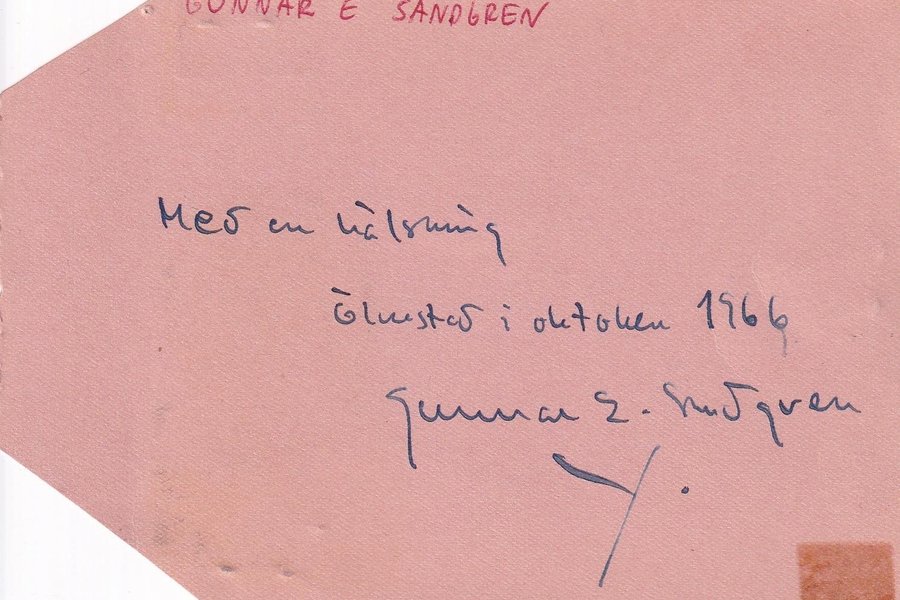 GUNNAR E SANDGREN
Med en hälsning
Ölmstad i oktober 1966
Gunnar E. Sandgren